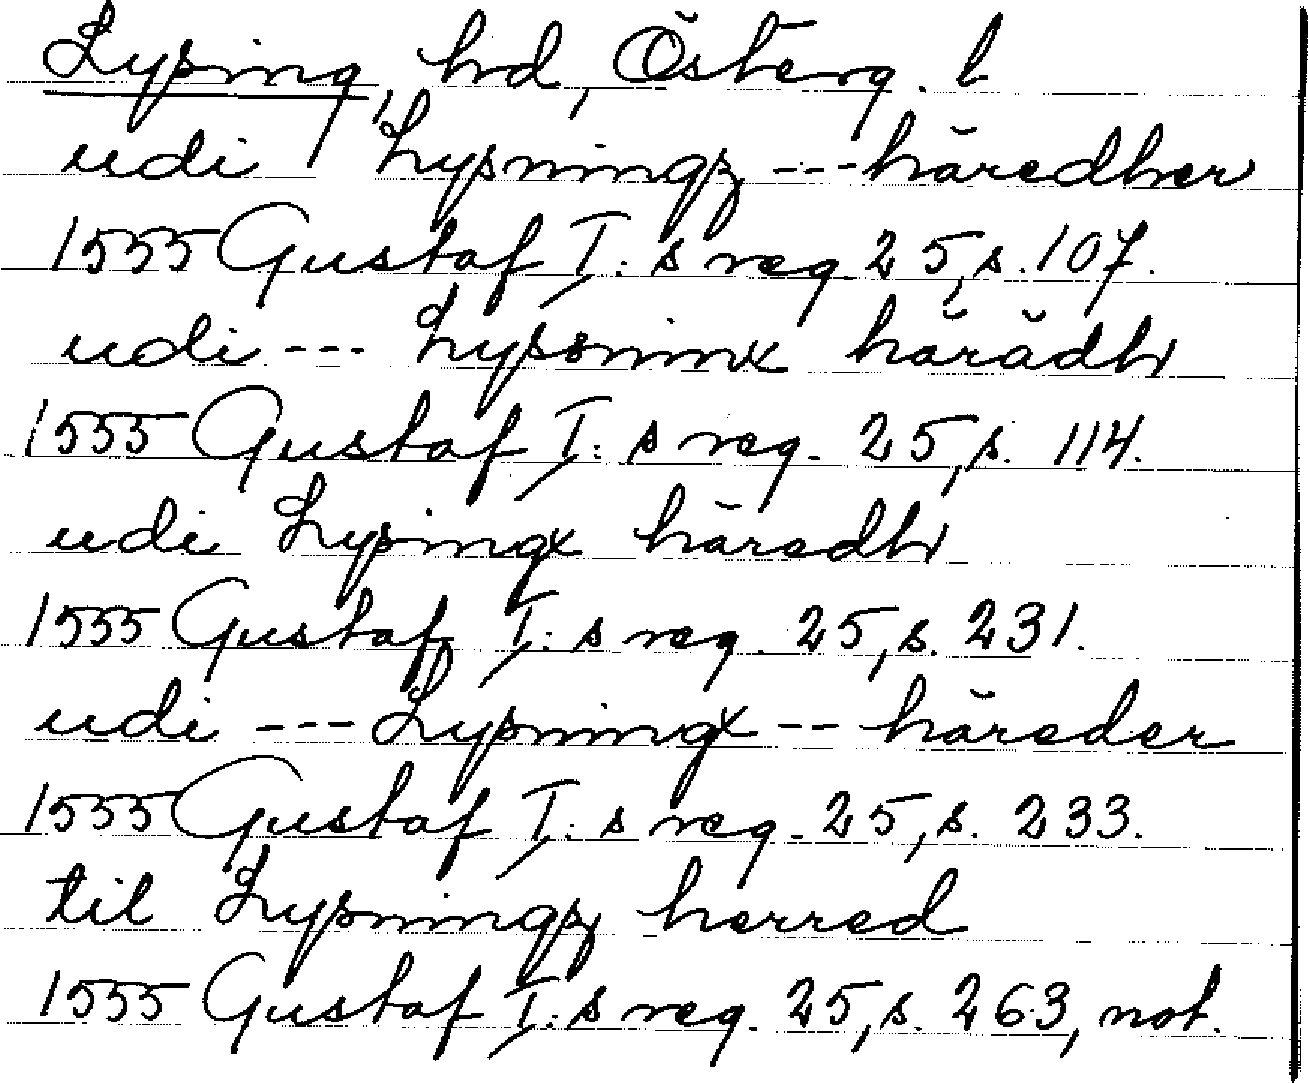 Lysing, hd, Österg. l
udi Lysningz --- häredher
1555 Gustaf I:s reg 25, s. 107.
udi --- Lyssninx härädh
1555 Gustaf I:s reg. 25, s. 114.
udi Lysingx häredh
1555 Gustaf I:s reg. 25, s. 231.
udi --- Lysningx -- häreder
1555 Gustaf I:s reg. 25, s. 233.
til Lysningz herred
1555 Gustaf I:s reg. 25, s. 263, not.